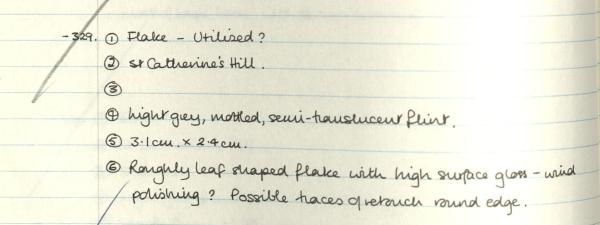 -329. ① Flake - Utilised?
② St Catherine's Hill.
③
④ Light grey, mottled, semi-translucent flint.
⑤ 3.1cm. x 2.4cm.
⑥ Roughly leaf shaped flake with high surface gloss - wind
polishing? Possible traces of retouch round edge.